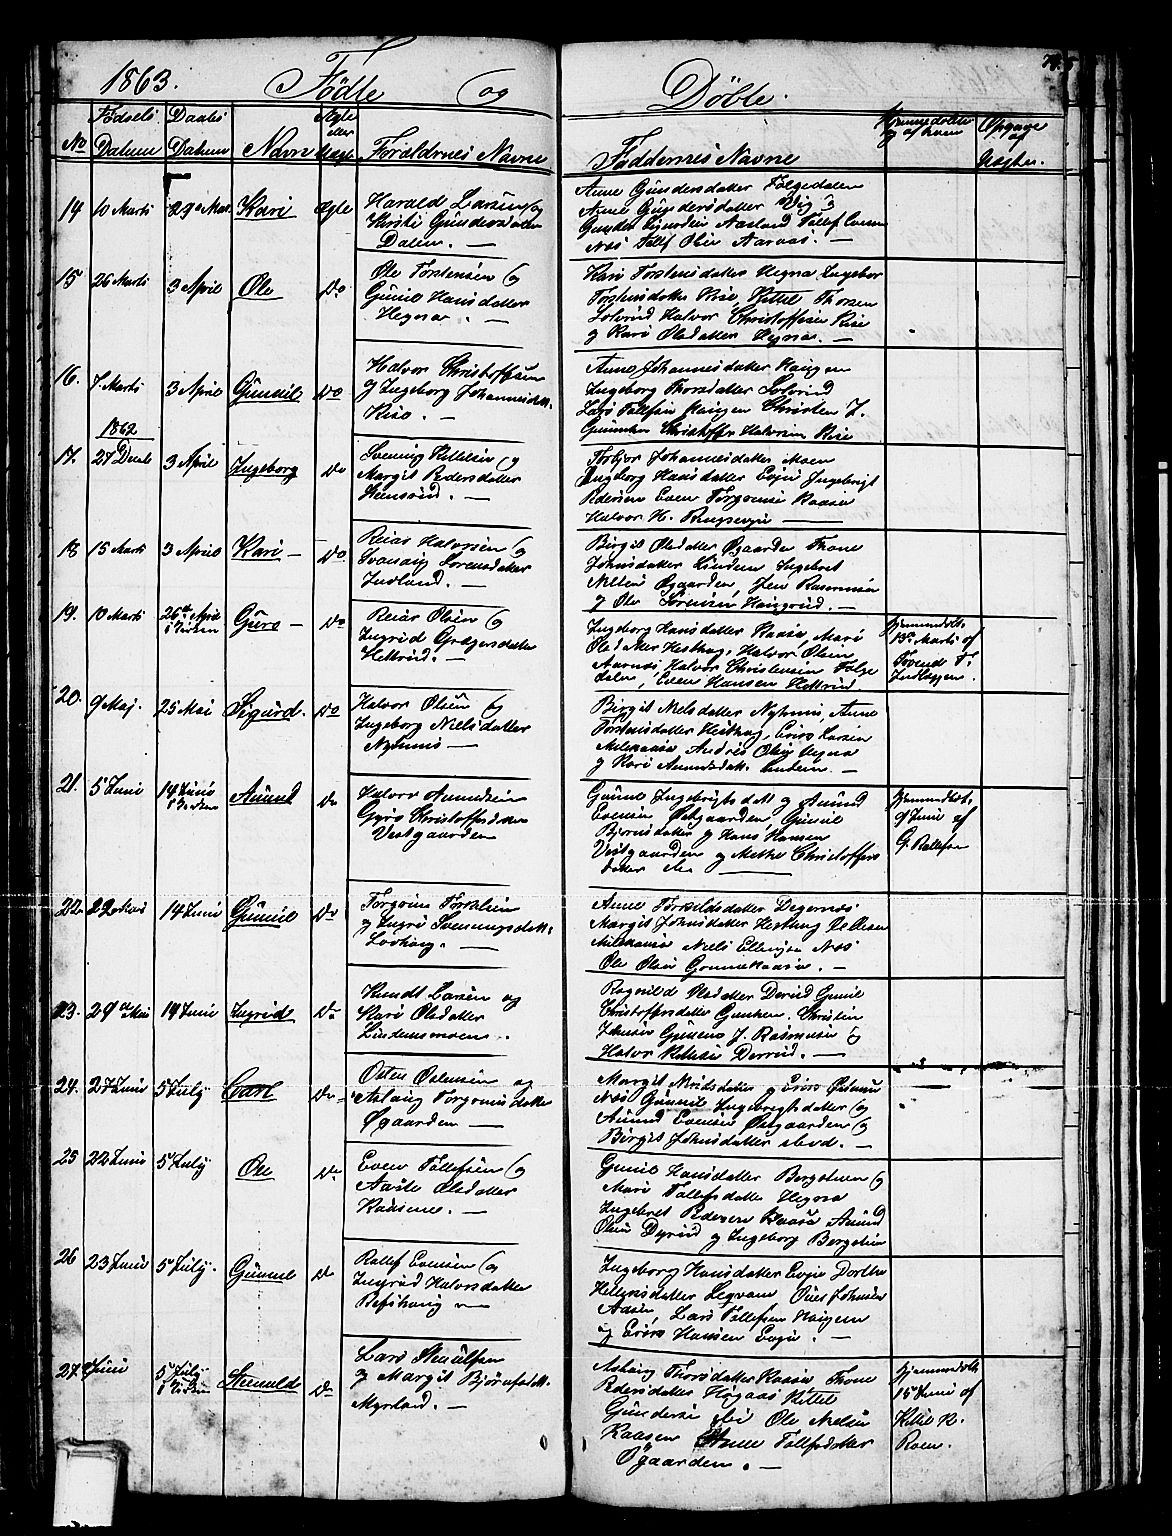 1863. Fødte og Døbte.
No Fødsels Datum Daabs Datum Navn Ægte eller Uægte Forældrenes Navne Faddernes Navne Hjemmedøbte og af hvem Opgave af
14 10 Marti 29de Mar Kari Ægte
Harald Larsen og
Kirsti Gundersdatter
Dalen. —
Anne Gundersdatter Følgedalen
Anne Gundersdatter Vig
Gunder Aasland Tollef Evensen
Næs Tollef Olsen Aarnæs. —
15 26 Marti 3 April Ole Do
Ole Torstensen og
Gunil Hansdatter
Hegna. —
Kari Torstensdatter Hegna Ingebor
Torstensdatter Rise, Kittel Thorsen
Solvrud Halvor Christoffersen Rise
og Kari Olsdatter Hegna. —
16. 7. Marti 3 April Gunnil Do
Halvor Christoffersen
og Ingeborg Johannesdatt.
Rise. —
Anne Johannesdatter Haugen
Ingeborg Thorsdatter Solvrud
Lars Tollefsen Haugen Christen J.
Christoffr Halvorsen Rise
1862
17. 27 Decmb 3 April Ingeborg Do
Svening Kittelsen og
Margit Pedersdatter
Steensrud. —
Torbjør Johannesdatter Moen
Ingborg Hansdatter Evju Ingebrigt
Pedersen Even Torgrimsen Kaasa
Halvor H. —
18 15 Marti 3 April Kari — Do
Reiar Halvorsen og
Svanaug Sørensdatter
Indland. —
Birgit Olsdatter Øgaarden Thone
Johnsdatter Lindem Ingebret
Nilsen Øgaarden, Jens Rasmusen
og Ole Sørensen Haugrud. —
19. 10 Marti 26de April i Kirken Guro — Do
Reiar Olsen og
Ingrid Gregersdatter
Hettrud. —
Ingeborg Hansdatter Kaasa, Mari
Olsdatter Hesthag, Halvor Olsen
Aarnæs, Halvor Christensen Følge
dalen, Even Hansen Hettrud.
Hjemmedøbt
13de Marti af
Tovend T.
20. 9 Maj. 25 Mai Sigurd. Do
Halvor Olsen og
Ingeborg Nielsdatter
Nyhuus —
Birgit Nielsdatter Nyhuus, Anne
Torstensdatter Hesthag, Eriks Larsen
Andres Olsen Hegna
og Kari Amundsdatt. Lindem. —
21. 5 Juni 14 Juni i Kirken Amund Do
Halvor Amundsen
Gyro Christoffersdatter
Vestgaarden
Gunil Ingebrigtsdatt og Amund
Evensen Østgaarden, Gunnil
Bjørnsdatter og Hans Hansen
Vestgaarden og Methe Christoffers
datter —
Hjemmedøbt
9 Juni af
G. Rollefsen
22 22 Mai 14 Juni Gunnil Do
Torgrim Torkelsen
og Ingri Sveningsdatt:
Løvhaug. —
Anne Torkildsdatter Degernæs
Margit Johnsdatter Hesthag
Niels Ellingsen Næs
Ole Olsen Grønnekaasa. —
23. 29de Mai 14 Juni Ingrid Do
Knudt Larsen og
Kari Olsdatter
Lindemsmoen.
Ragnild Olsdatter Dørrud Gunil
Christoffersdatter Christen
Johnsen J. Rasmusen og
Halvor Kittelsen Dørrud. —
24. 27 Juni 5 July Carl Do —
Osten Ostensen og
Aslaug Torgrimsdatter
Øgaarden —
Margit Nirisdatter og Eriks Østensen
Næs Gunnil Ingebrigtsdatter og
Amund Evensen Østgaarden og
Birgit Johnsdatter ibid. —
25 22 Juni 5 July Ole Do
Even Tollefsen og
Aaste Olsdatter
Kaasene. —
Gunil Hansdatter Bergstuen og
Mari Tollefsdatter Hegna
Ingebret Pedersen Kaasa Amund
Olsen Dyrud og Ingeborg Bergstuen
26 23 Juni 5 July. Gunnil Do
Rollef Evensen og
Ingrid Halvorsdatter
Refshaug —
Ingeborg Hansdatter Evju Dorthe
Hellensdatter Johnsen
Aasen Lars Tollefsen Haugen
og Eriks Hansen Evju. —
27. 2 Juni 5 July i Kirken Steenulde Do
Lars Stenulfsen
og Margit Bjørnulfsdatt.
Myrland. —
Aslaug Thorsdatter Kaasa Thone
Pedersdatter Høgaas Kittel
Gundersen ibid Ole Nielsen
Kaasen Anne Tollefsdatter
Øgaarden. —
Hjemmedøbt
15 Juni af
Kittil K.
Roen.